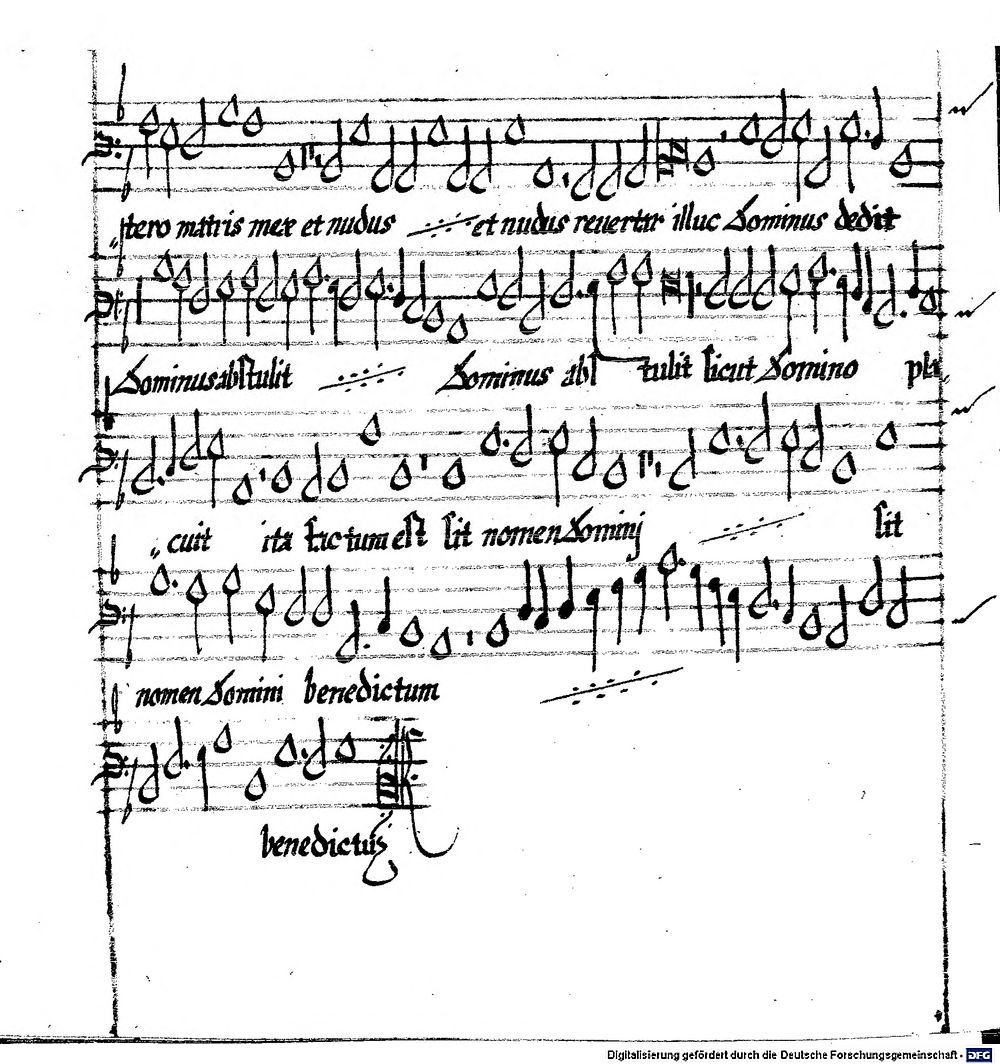 „ſtero matris meæ et nudus et nudus reuertar illuc Dominus dedit
Dominus abſtulit Dominus abſ tulit ſicut Domino pla„
„cuit ita factum eſt ſit nomen Dominj ſit
nomen Domini benedictum
benedictus
Digitalisierung gefördert durch die Deutsche Forschungsgemeinschaft - DFG